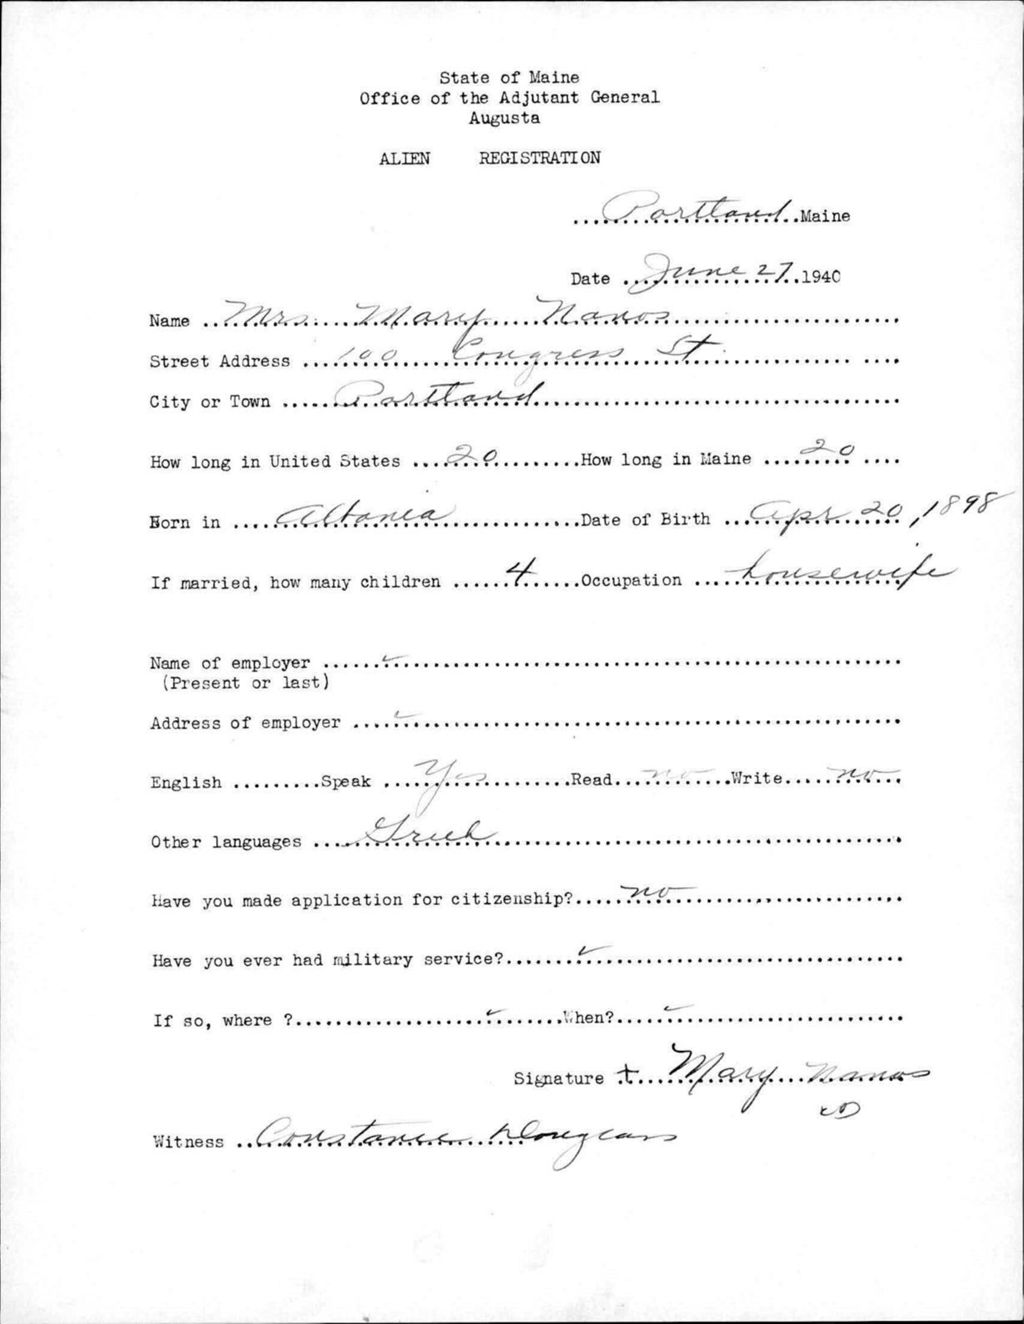 State of Maine
Office of the Adjutant General
Augusta
ALIEN REGISTRATION
....Portland....Maine
Date ....June 27..1940
Name ....Mrs. Mary Nanos....
Street Address ....100 Congress St....
City or Town ....Portland....
How long in United States ....20....How long in Maine ....20....
Born in ....Albania....Date of Birth ....Apr 20, 1898
If married, how many children ....4....Occupation ....housewife
Name of employer ....✓....
(Present or last)
Address of employer ....✓....
English .........Speak ....Yes....Read....no....Write....no....
Other languages ....Greek....
Have you made application for citizenship?....no....
Have you ever had military service?....✓....
If so, where ?....✓....When?....✓....
Signature ....Mary Nanos
Witness ....Constance